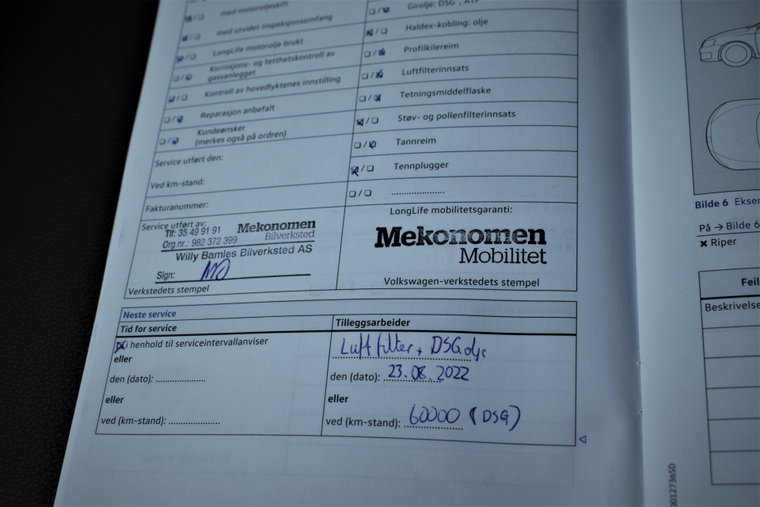 med motoroljeskift
med utvidet inspeksjonsomfang
LongLife motorolje brukt
Korrosjons- og tetthetskontroll av
gassanlegget
Kontroll av hovedlyktenes innstilling
Reparasjon anbefalt
Kundeønsker
(merkes også på ordren)
Service utført den:
Ved km-stand:
Fakturanummer:
Service utført av:
Tlf: 35 49 91 91
Org.nr.: 982 372 399
Mekonomen
Bilverksted
Willy Bamles Bilverksted AS
Sign:
Verkstedets stempel
Haldex-kobling: olje
Profilkilereim
Luftfilterinnsats
Tetningsmiddelflaske
Støv- og pollenfilterinnsats
Tannreim
Tennplugger
LongLife mobilitetsgaranti:
Mekonomen
Mobilitet
Volkswagen-verkstedets stempel
Neste service
Tid for service
i henhold til serviceintervallanviser
eller
den (dato):
eller
ved (km-stand):
Tilleggsarbeider
Luftfilter + DSG olje
den (dato): 23.08.2022
eller
ved (km-stand): 60000 (DSG)
Bilde 6
På → Bilde 6
× Riper
Feil
Beskrivelse